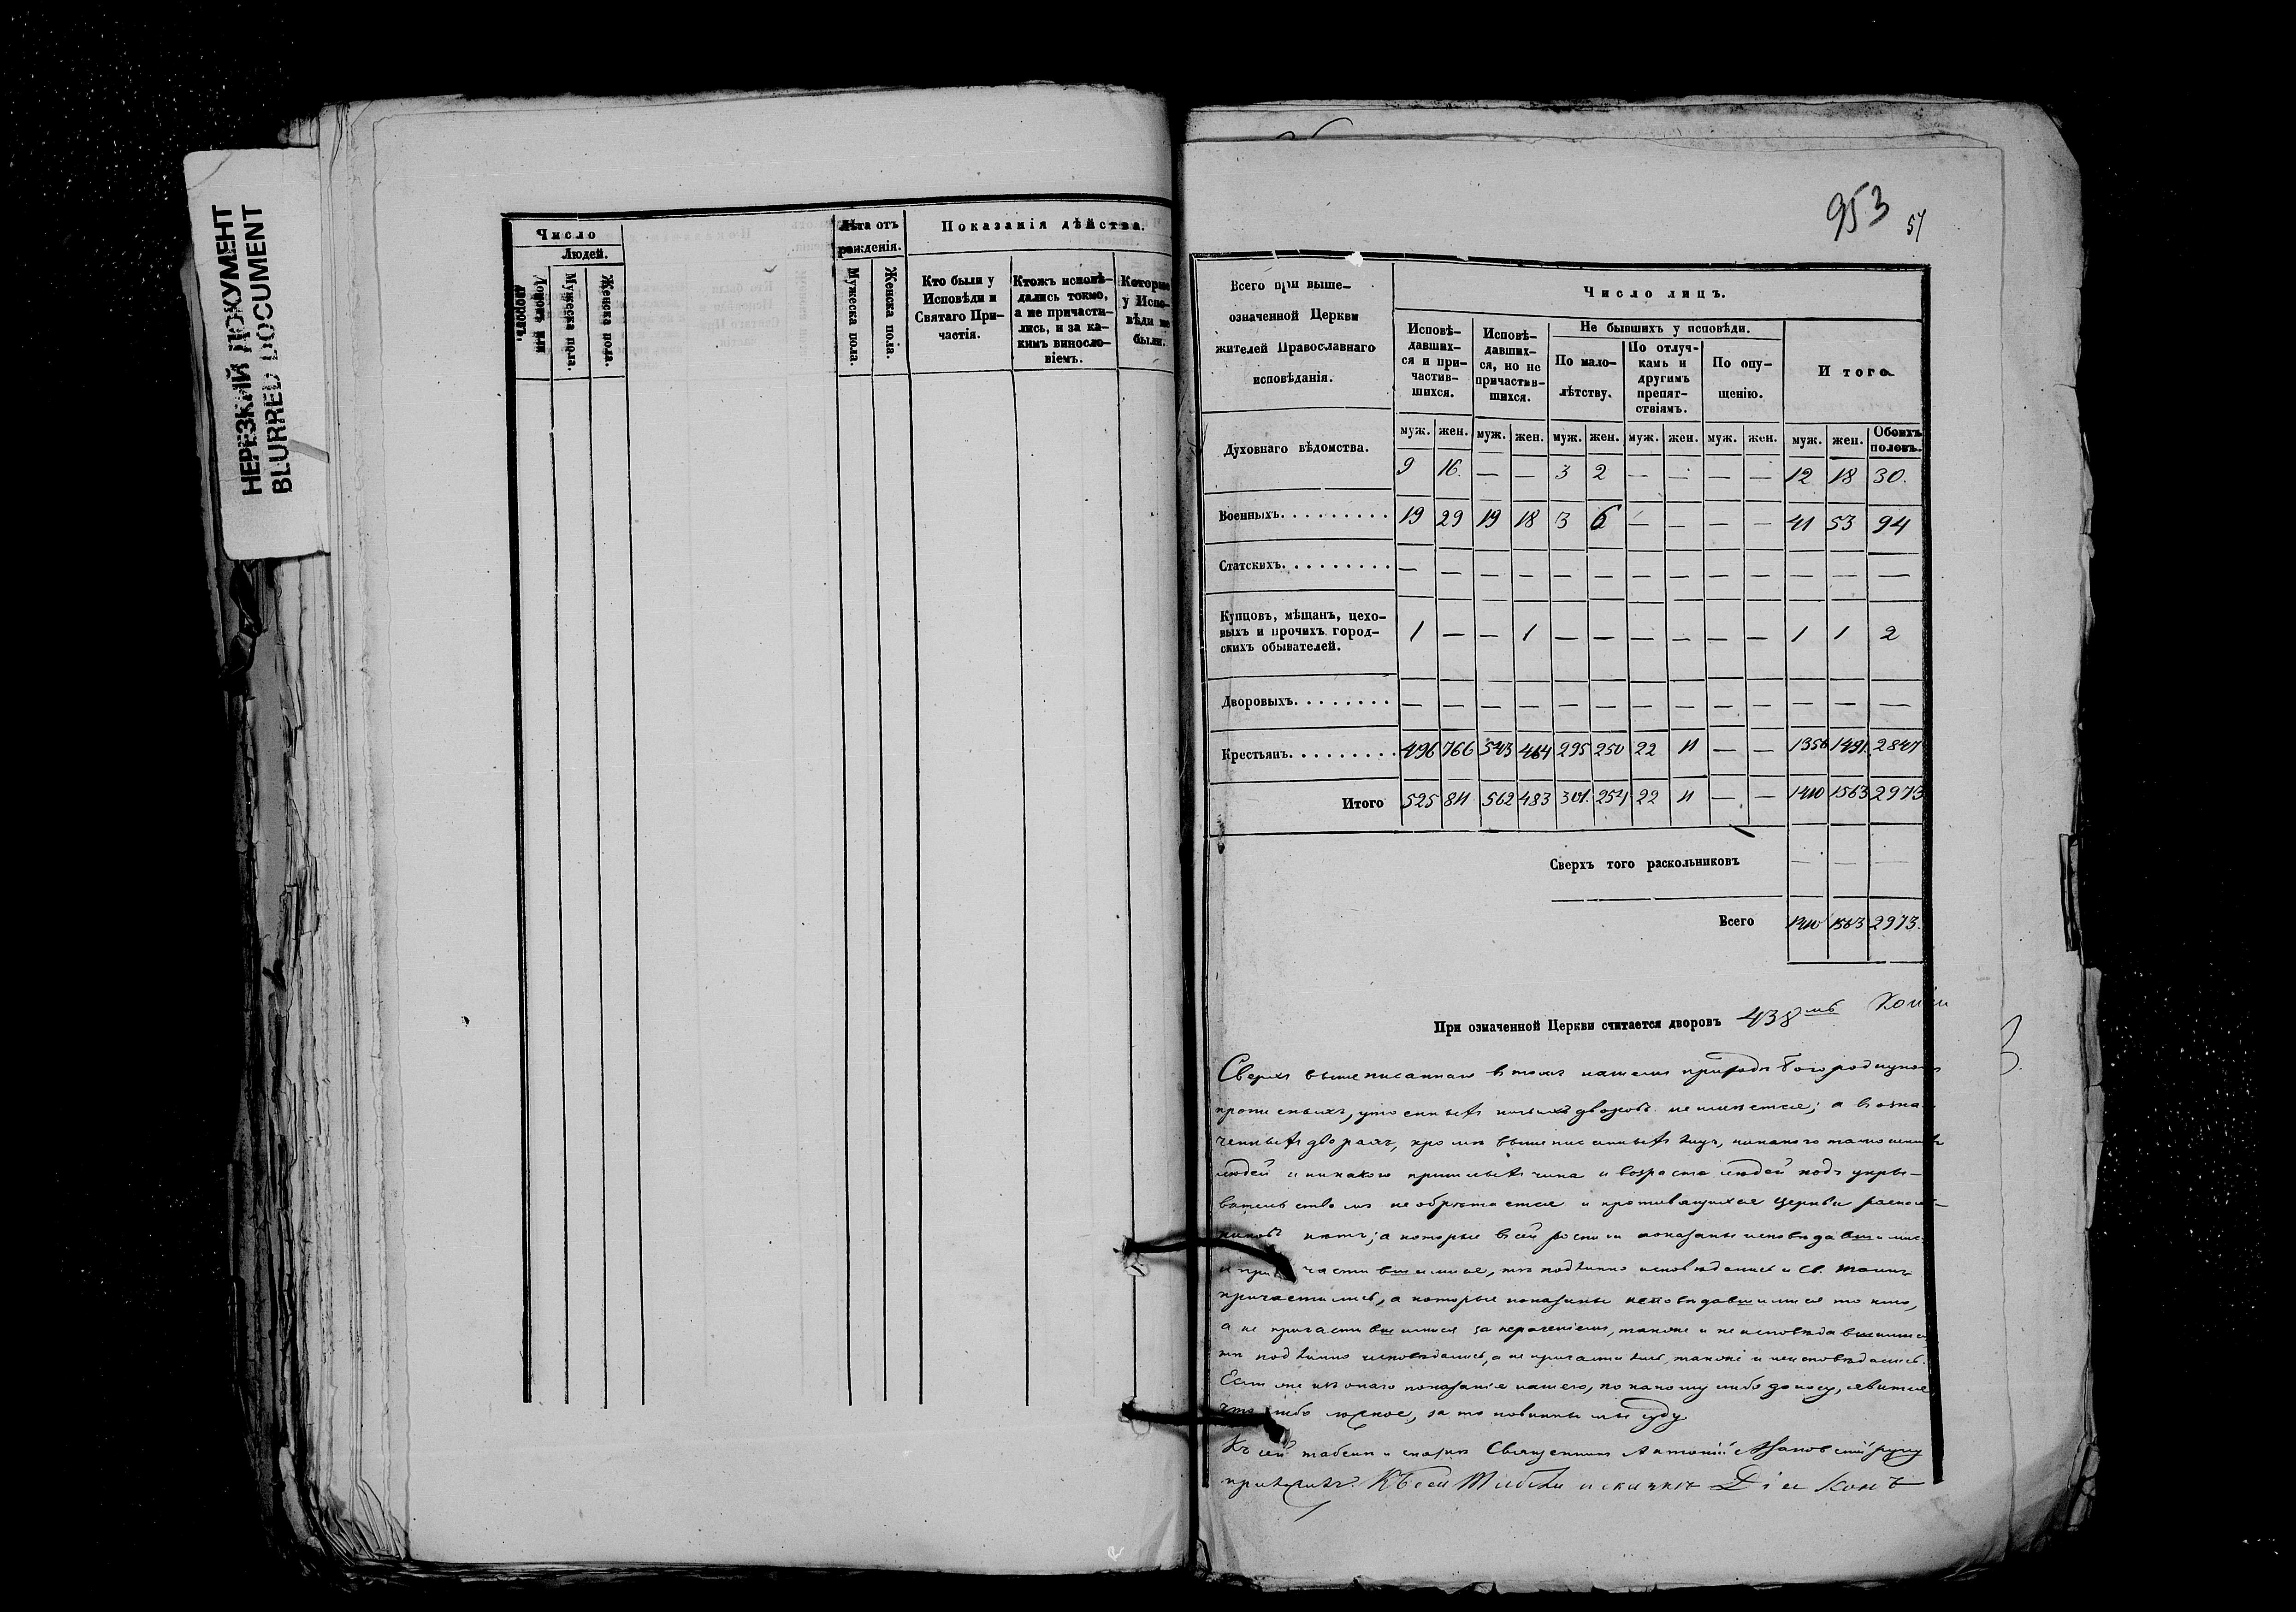 НЕРЕЗКИЙ ДОКУМЕНТ
BLURRED DOCUMENT
Число
Людей.
Домовъ или дворовъ.
Мужеска пола.
Женска пола.
Лѣта отъ рожденія.
Мужеска пола.
Женска пола.
Показанія дѣйства.
Кто были у Исповѣди и Святаго Причастія.
Ктожъ исповѣдались токмо, а не причастились, и за какимъ винословіемъ.
Которые у Исповѣди не были.
953
51
Всего при вышеозначенной Церкви жителей Православнаго исповѣданія.
Число лицъ.
Исповѣдавшихся и причастившихся.
Исповѣдавшихся, но не причастившихся.
Не бывшихъ у исповѣди.
По малолѣтству.
По отлучкамъ и другимъ препятствіямъ.
По опущенію.
Итого
муж. жен. муж. жен. муж. жен. муж. жен. муж. жен. муж. жен. Обоихъ половъ.
Духовнаго вѣдомства. 9 16. — — 3 2 — — — — 12 18 30.
Военныхъ. . . . . . . . . 19 29 19 18 3 6 — — — — 41 53 94
Статскихъ. . . . . . . . . — — — — — — — — — — — — —
Купцовъ, мѣщанъ, цеховыхъ и прочихъ городскихъ обывателей. 1 — — 1 — — — — — — 1 1 2
Дворовыхъ. . . . . . . . — — — — — — — — — — — — —
Крестьянъ. . . . . . . . . 496 766 543 464 295 250 22 11 — — 1356 1491. 2847
Итого 525 811 562 483 301. 258 22 11 — — 1410 1563 2973
Сверхъ того раскольниковъ — — —
Всего 1410 1563 2973.
При означенной Церкви считается дворовъ 438 мь
Сверхъ вышеписаннаго в томъ нашемъ приходѣ
дворовъ не имѣется; а в озна-
ченныхъ дворахъ, кромѣ вышеписанныхъ лицъ, никакого
людей и никакого чина и возраста людей подъ укры-
вательствомъ не обрѣтается и противящихся церкви расколь-
никовъ нѣтъ; а которые в сей росписи показаны исповѣдавшимися
и причастившимися, тѣ подлинно исповѣдались и Св. Таинъ
причастились, а которые показаны исповѣдавшимися токмо,
а не причастившимися за нераченіемъ, также и не исповѣдавшимися
тѣ подлинно исповѣдались, а не причастились, также и не исповѣдались.
Если же изъ онаго показанія нашего, по какому либо доносу, явится
что либо ложное, за то повинны мы суду.
Къ сей табели и сказкѣ Священникъ Антоній руку
приложилъ. Къ сей Табели и сказкѣ Діаконъ